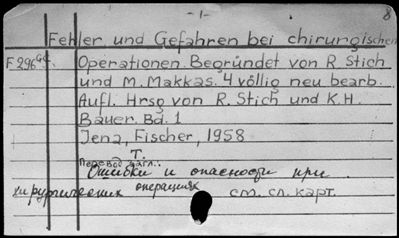 -1-
8
Fehler und Gefahren bei chirurgischen
F296 Operationen. Begründet von R. Stich
und M. Makkas. 4 völlig neu bearb.
Aufl. Hrsg von R. Stich und K.H.
Bauer. Bd. 1
Jena, Fischer, 1958
Т.
Перевод загл.:
Ошибки и опасности при
хирургических операциях см. сл. карт.